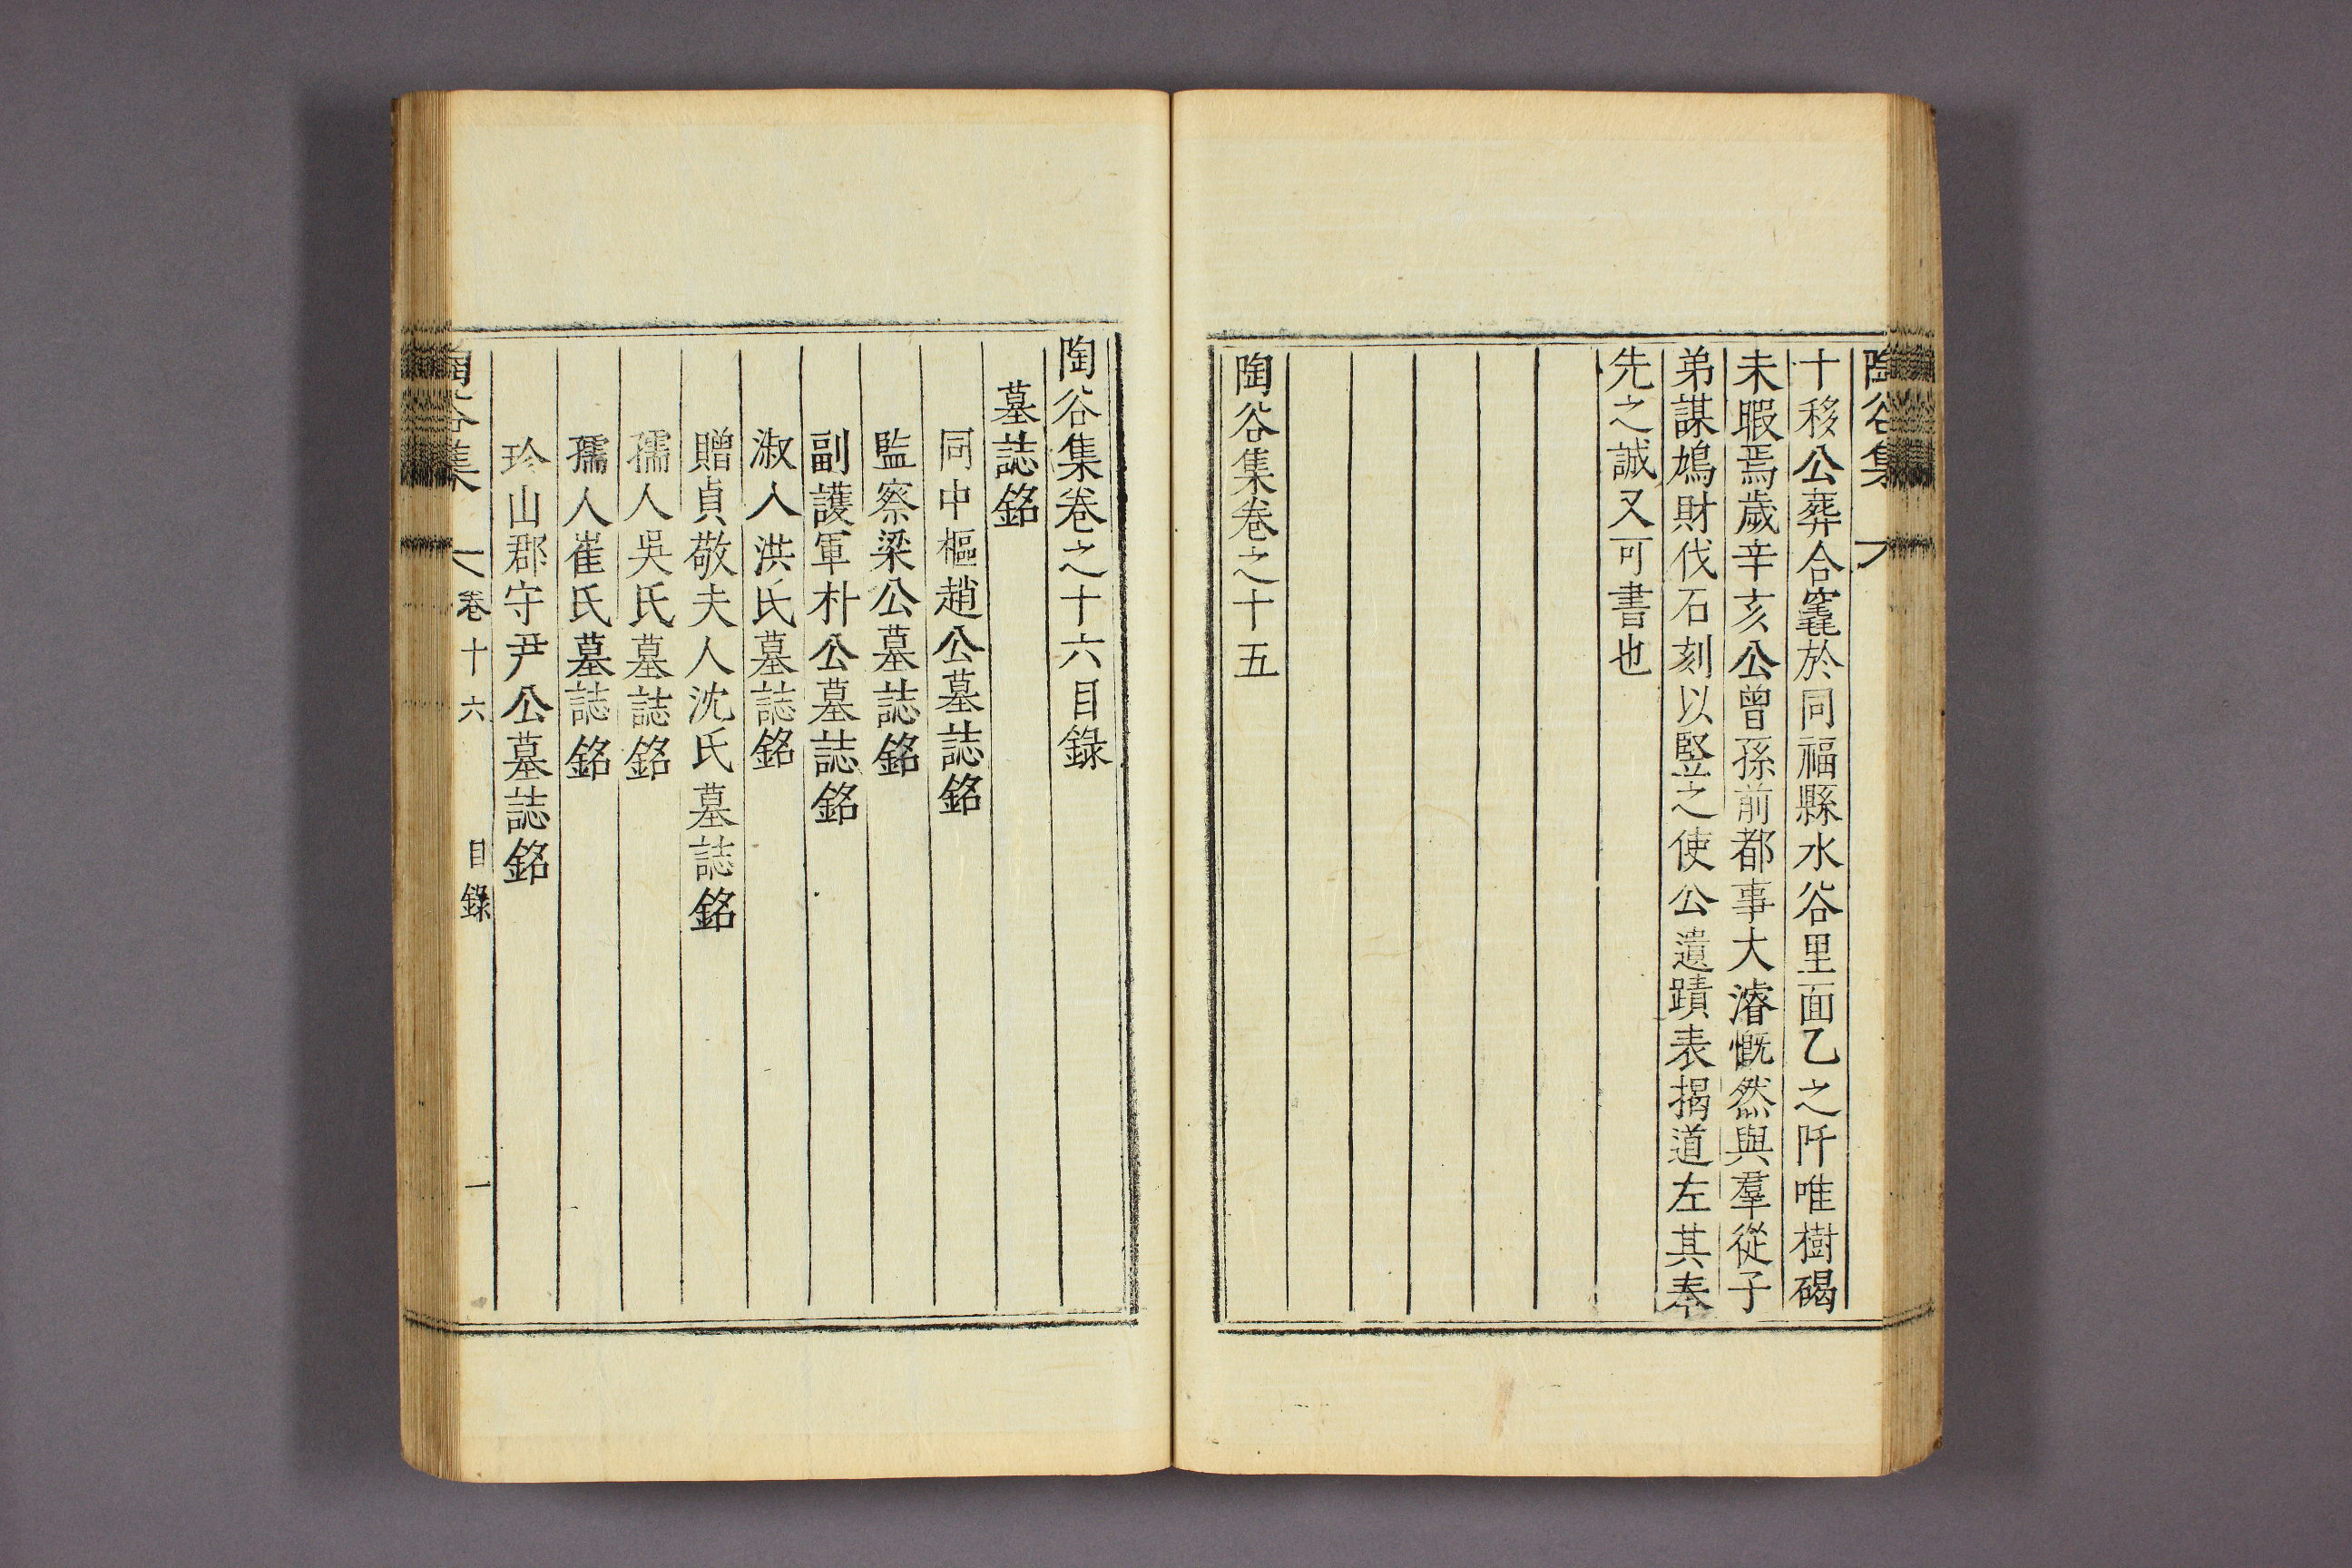 陶谷集
十移公葬合窆於同福縣水谷里面乙之阡唯樹碣
未暇焉歲辛亥公曾孫前都事大濬慨然與羣從子
弟謀鳩財伐石刻以竪之使公遺蹟表揭道左其奉
先之誠又可書也
陶谷集卷之十五
陶谷集卷之十六目錄
墓誌銘
同中樞趙公墓誌銘
監察梁公墓誌銘
副護軍朴公墓誌銘
淑人洪氏墓誌銘
贈貞敬夫人沈氏墓誌銘
孺人吳氏墓誌銘
孺人崔氏墓誌銘
珍山郡守尹公墓誌銘
陶谷集 卷十六 目錄 一